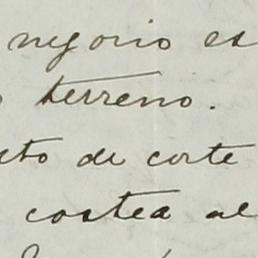 negocio es
terreno.
de corte
costea al